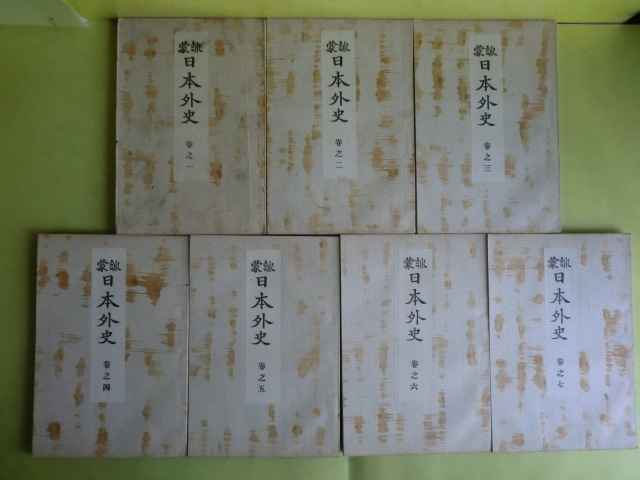 訓蒙
日本外史
巻之一
訓蒙
日本外史
巻之二
訓蒙
日本外史
巻之三
訓蒙
日本外史
巻之四
訓蒙
日本外史
巻之五
訓蒙
日本外史
巻之六
訓蒙
日本外史
巻之七